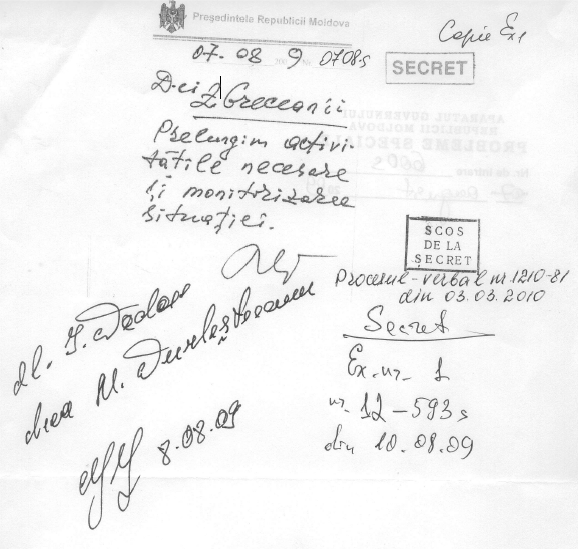 Preşedintele Republicii Moldova
Copie Ex1
07.08 9 0708-s
SECRET
D-ei Z Greceanîi
Prelungim activi-
tăţile necesare
şi monitorizarea
situaţiei.
APARATUL GUVERNULUI
REPUBLICII MOLDOVA
PROBLEME SPECIALE
Nr. de intrare
SCOS
DE LA
SECRET
Procesul-verbal nr. 1210-81
din 03.03.2010
Secret
Ex. nr. 1
nr. 12-593s
din 10.08.09
dl. I. Dodon
dna M. Durleşteanu
8.08.09